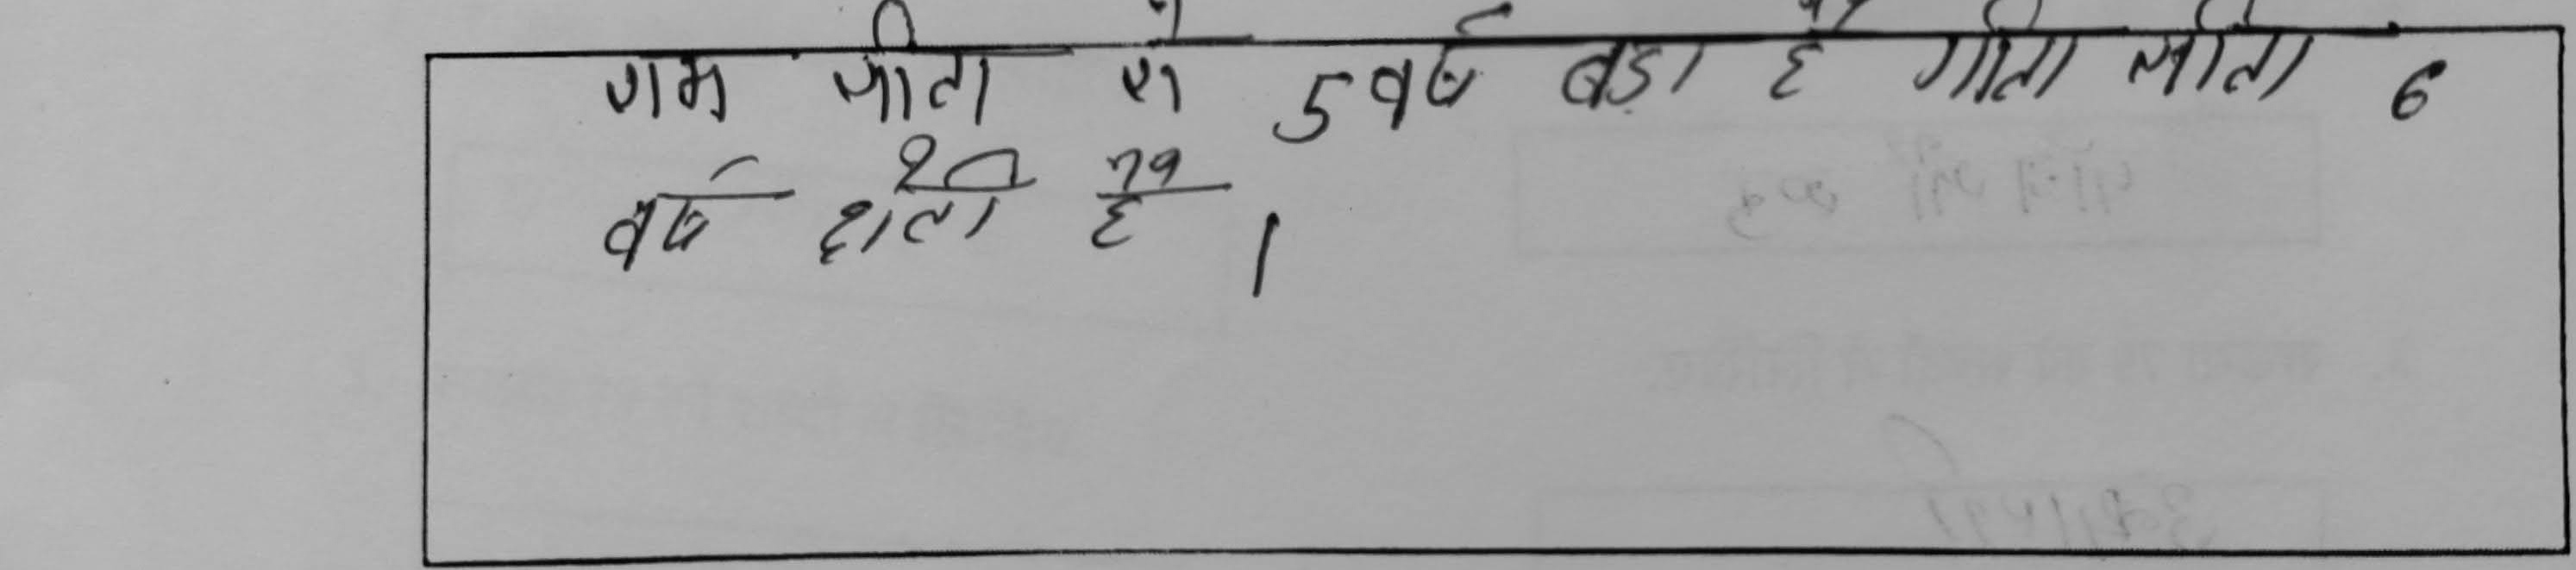 राम गीता से 5 वर्ष बड़ा है गीता सीता 6
वर्ष है ।